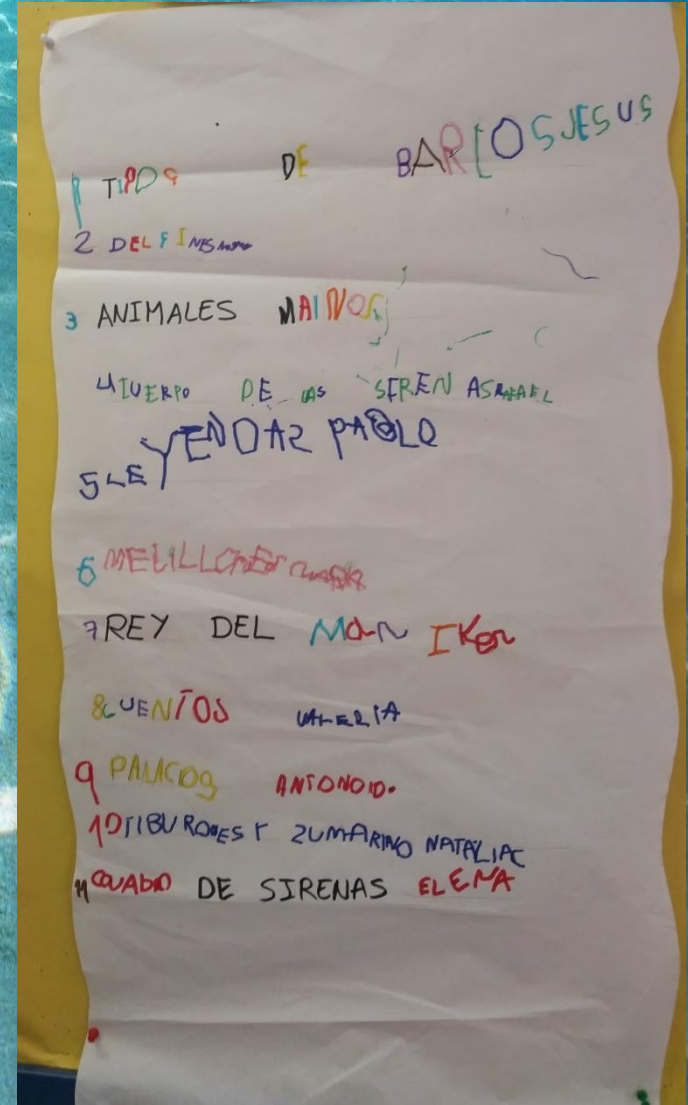 1 TIPOS DE BARCOS JESUS
2 DELFINES
3 ANIMALES MAINOS
4 IUERPO DE LAS SIRENAS RAFAEL
5 LEYENDAZ PABLO
6 MELILLONES
7 REY DEL MAR IKER
8 CUENTOS VALERIA
9 PALACOS ANTONOIO.
10 TIBURONES Y ZUMARINO NATALIAC
11 CUADRO DE SIRENAS ELENA